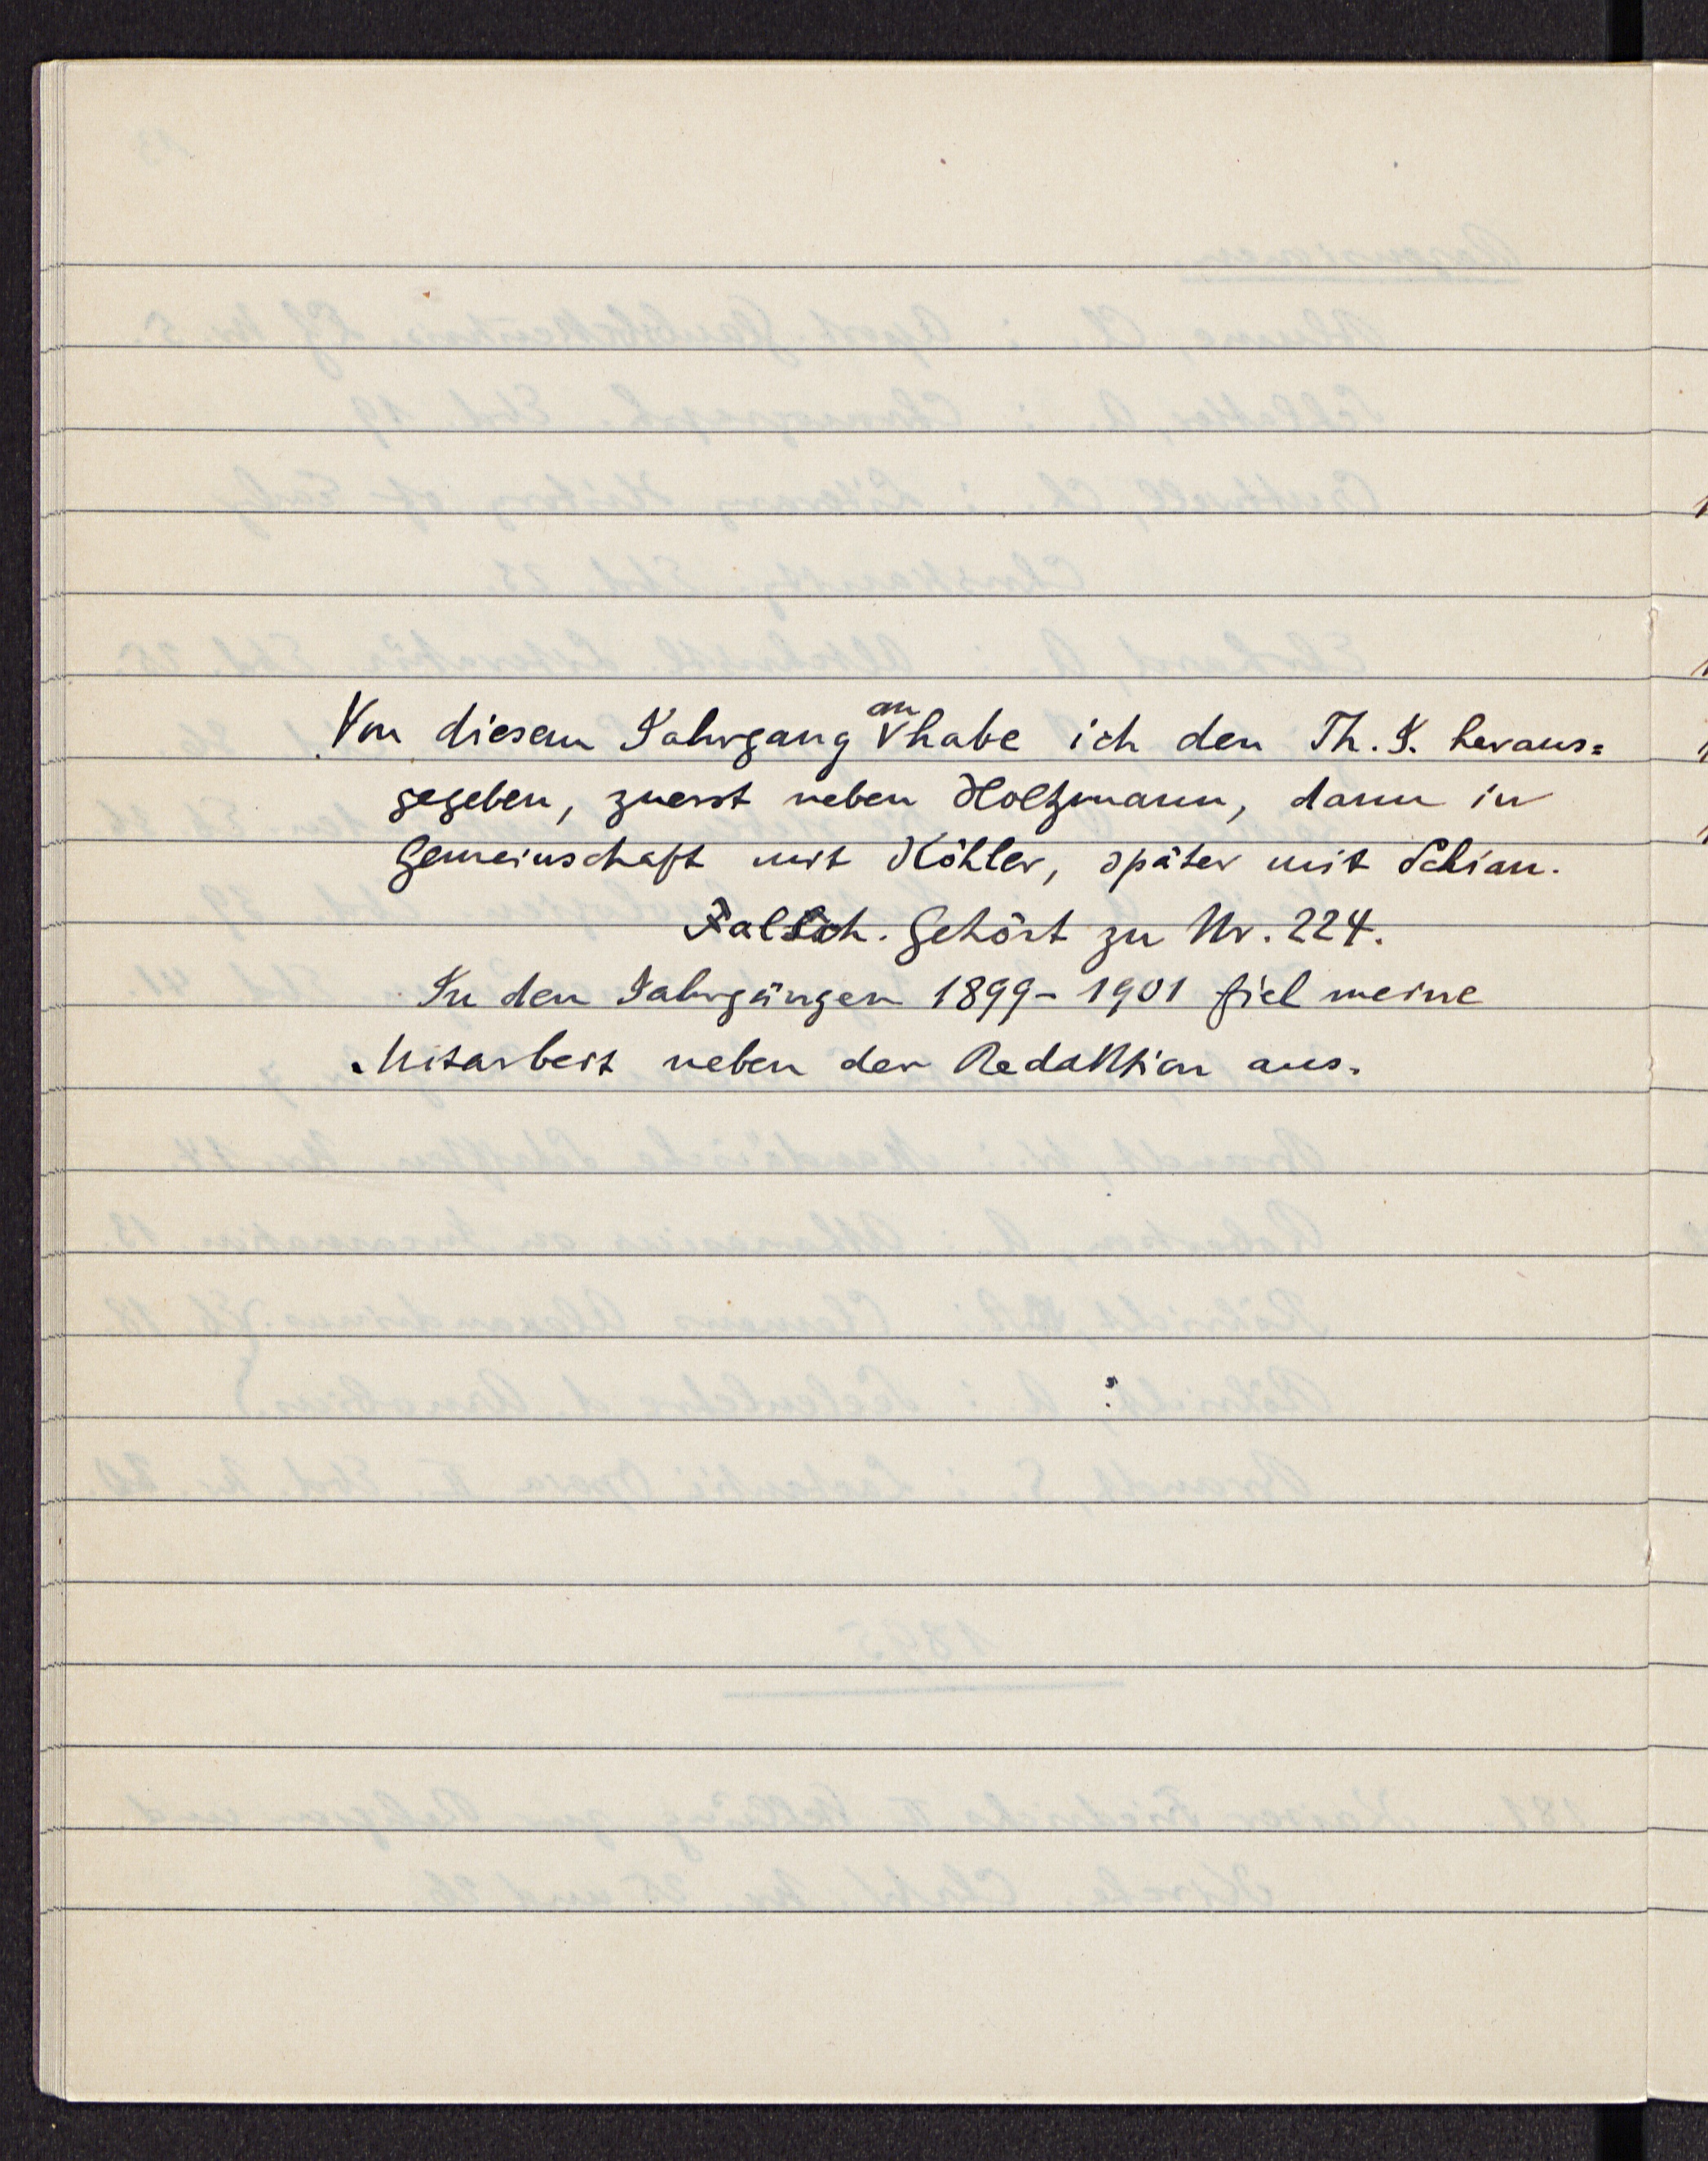 Von diesem Jahrgang an habe ich den Th. J. heraus=
gegeben, zuerst neben Holtzmann, dann in
Gemeinschaft mit Köhler, später mit Schian.
Falsch. Gehört zu Nr. 224.
In den Jahrgängen 1899-1901 fiel meine
Mitarbeit neben der Redaktion aus.